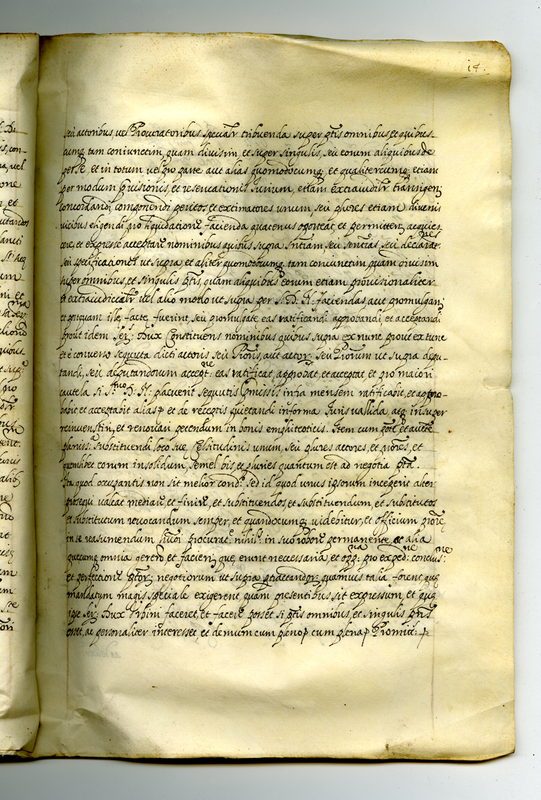 14.
seu actoribus, vel Procuratoribus specialr tribuenda super ptis omnibus et quibus
cumq tam coniunctim, quam divisim, et super singulis, seu eorum aliquibus de
per se, et in totum vel pro parte aut alias quomodocumq et qualitercumq etiam
per modum provisionis, et reservationis iurium, etiam extraiudialr transigen
concordandi, componendi pensores, et extimatores unum seu plures etiam diversis
vicibus eligendi pro liquidatione facienda quatenus oporteat, et permitten acquies
et expresse acceptare nominibus quibus supra sniam seu snias seu declarat
seu specificationes ut supra et aliter quomodocumq tam coniunctim quam divisim
super omnibus, et singulis ptis, quam aliquibus eorum etiam provisionaliter
et extraiudicialr vel alio modo ut supra per S. D. N. faciendas aut promulgan
et postquam ille facte fuerint, seu promulgate eas ratificandi approbandi et acceptandi
prout idem Ser. Dux Constituens nominibus quibus supra ex nunc prout ex tunc
et converso sequuta dicti actoris seu Proris, aut actor. seu Prorum ut supra depu-
tandi, seu deputandorum accept. eas ratificat, approbat, et acceptat et pro maiori
cautela si S. D. N. placuerit sequutis pmissis infra mensem ratificabit, et appro-
babit et acceptabit alias et de receptis quietandi in forma Iuris vallida, atq insuper
reinvestin, et renovan petendum in bonis emphiteoticis. Item cum ptate et autte
substituendi loco sue Celsitudinis unum, seu plures actores, et prores, et
quemlibet eorum insolidum semel bis et plures quantum est ad negotia pta
Ita quod occupantis non sit melior condo. sed id quod unus ipsorum inceperit alter
prosequi valeat mediare, et finire, et substituendos et substituendum, et substitutos
et substitutum revocandum semper, et quandocumq videbitur, et officium proris
in se reasumendum pnti procurae nihilo. in suo robore permanente et alia
quecumq omnia gerend et facien que erunt necessaria, et opp. pro exped. conclus.
et perfectione ptor. negotiorum ut supra quamvis talia forent que
mandatum magis speciale exigerent quam presentibus sit expressum, et que
ipse Ser. Dux Urbini faceret, et facere posset si ptis omnibus, et singulis pns
esset, ac personaliter interesset, et demum cum pleno cum plena Promitt.